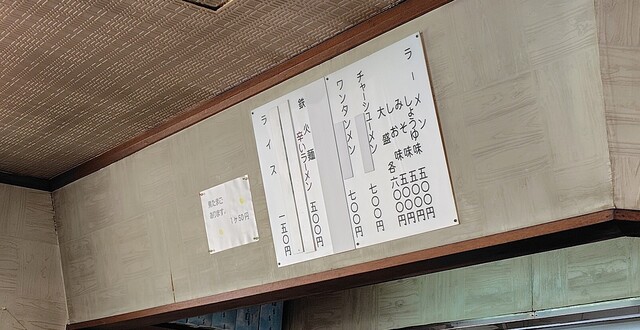 ラーメン
しょうゆ味 五〇〇円
みそ味 五〇〇円
しお味 五〇〇円
大盛 各六〇〇円
チャーシューメン 七〇〇円
ワンタンメン 七〇〇円
鉄火麺
辛いラーメン 五〇〇円
ライス 一五〇円
煮たまご
あります。
1ケ50円